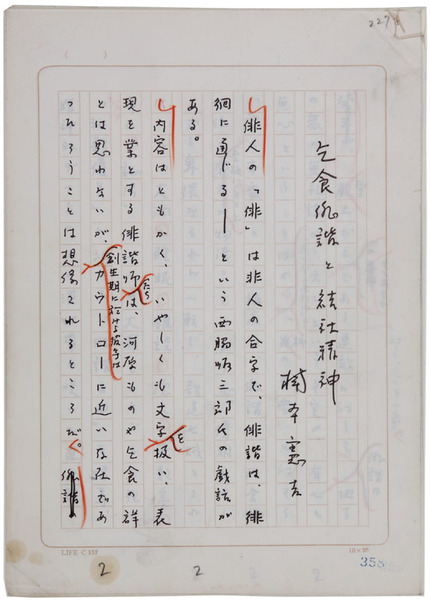 227
乞食俳諧と結社精神
楠本憲吉
俳人の「俳」は非人の合字で、俳諧は、徘
徊に通じる―という西脇順三郎氏の戯話が
ある。
内容はともかく、いやしくも文字を扱い、表
現を業とする俳諧師たちは、河原ものや乞食の群
とは思わないが、創生期における彼等はアウトローに近い存在であ
ったろうことは想像されるところだ。俳諧
LIFE C 155
358
2
2
2